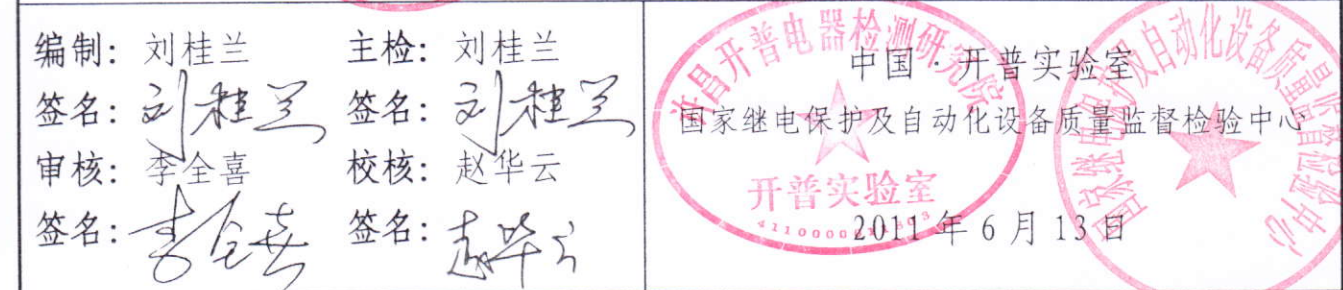 编制：刘桂兰 主检：刘桂兰
签名：刘桂兰 签名：刘桂兰
审核：李全喜 校核：赵华云
签名：李全喜 签名：赵华云
中国·开普实验室
国家继电保护及自动化设备质量监督检验中心
2011年6月13日
许昌开普电器检测研究院
开普实验室
国家继电保护及自动化设备质量监督检验中心